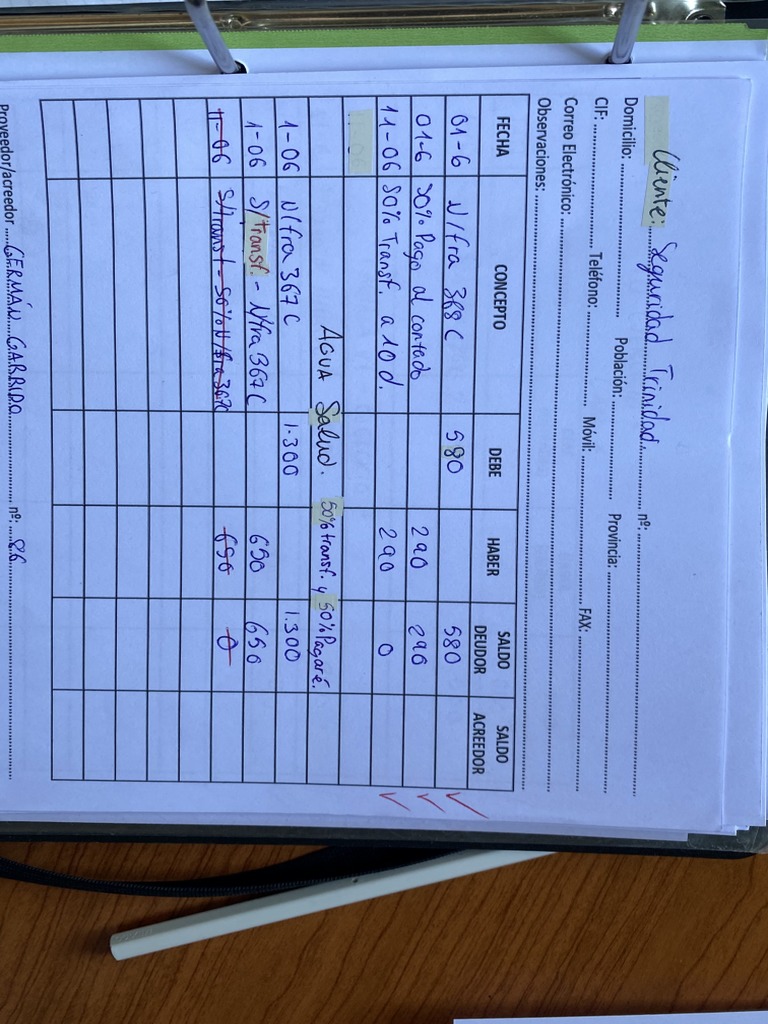 Cliente: Seguridad Trinidad. nº:
Domicilio: Población: Provincia:
CIF: Teléfono: Móvil: FAX:
Correo Electrónico:
Observaciones:
FECHA CONCEPTO DEBE HABER SALDO DEUDOR SALDO ACREEDOR
01-6 N/fra 368 C 580 580
01-6 50% Pago al contado 290 290
11-06 50% Transf. a 10 d. 290 0
11-06
AGUA Salud. 50% transf. y 50% Pagaré.
1-06 N/fra 367 C 1.300 1.300
1-06 S/transf. - N/fra 367 C 650 650
1-06 S/transf - 50% N/fra 367C 650 0
Proveedor/acreedor GERMÁN GARRIDO nº: 86